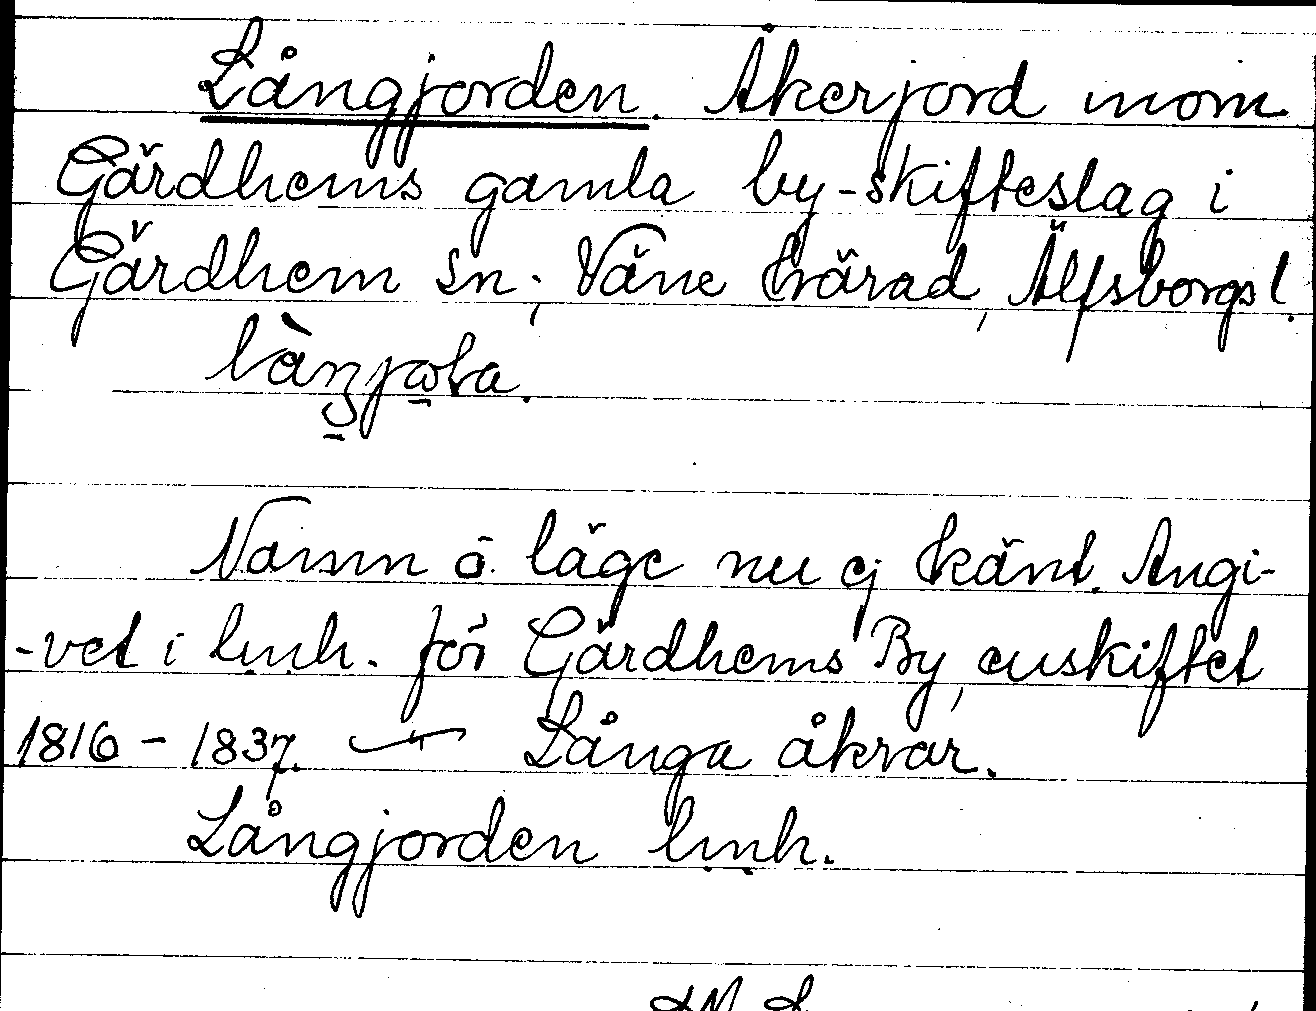 Långjorden. Åkerjord inom
Gärdhems gamla by-skifteslag i
Gärdhem sn; Väne härad, Älfsborgs l.
Namn o. läge nu ej känt. Angi-
-vet i lmh. för Gärdhems By, enskiftet
1816 - 1837. — " — Långa åkrar.
Långjorden lmh.